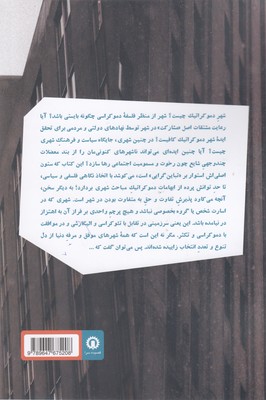 شهر دموکراتیک چیست؟ شهر از منظر فلسفهٔ دموکراسی چگونه بایستی باشد؟ آیا
رعایت مشتقات اصل «مشارکت» در شهر توسط نهادهای دولتی و مردمی برای تحقق
ایدهٔ شهر دموکراتیک کافیست؟ در چنین شهری، جایگاه سیاست و فرهنگ شهری
چیست؟ آیا چنین ایده‌ای می‌تواند ناشهرهای کنونی‌مان را از بند معضلات
چندوجهی شایع چون رخوت و مسمومیت اجتماعی رها سازد؟ این کتاب که ستون
اصلی‌اش استوار بر «تباین‌گرایی» است می‌کوشد با اتخاذ نگاهی فلسفی و سیاسی،
تا حد توانش پرده از ابهامات دموکراتیک ساحت شهری بردارد؛ به دیگر سخن،
آنچه می‌کاود پذیرش تفاوت و حق به متفاوت بودن در شهر است. شهری که در
اسارت شخص یا گروه مخصوصی نباشد و هیچ پرچم واحدی بر فراز آن به اهتزاز
در نیامده باشد. این یعنی سرزمینی در تقابل با تئوکراسی و الیگارشی و در موافقت
با دموکراسی و تکثر. مگر نه این است که همهٔ شهرهای موفق و مرفه دنیا از دل
تنوع و تعدد انتخاب زاییده شده‌اند. پس می‌توان گفت که ...
9 789647 675208